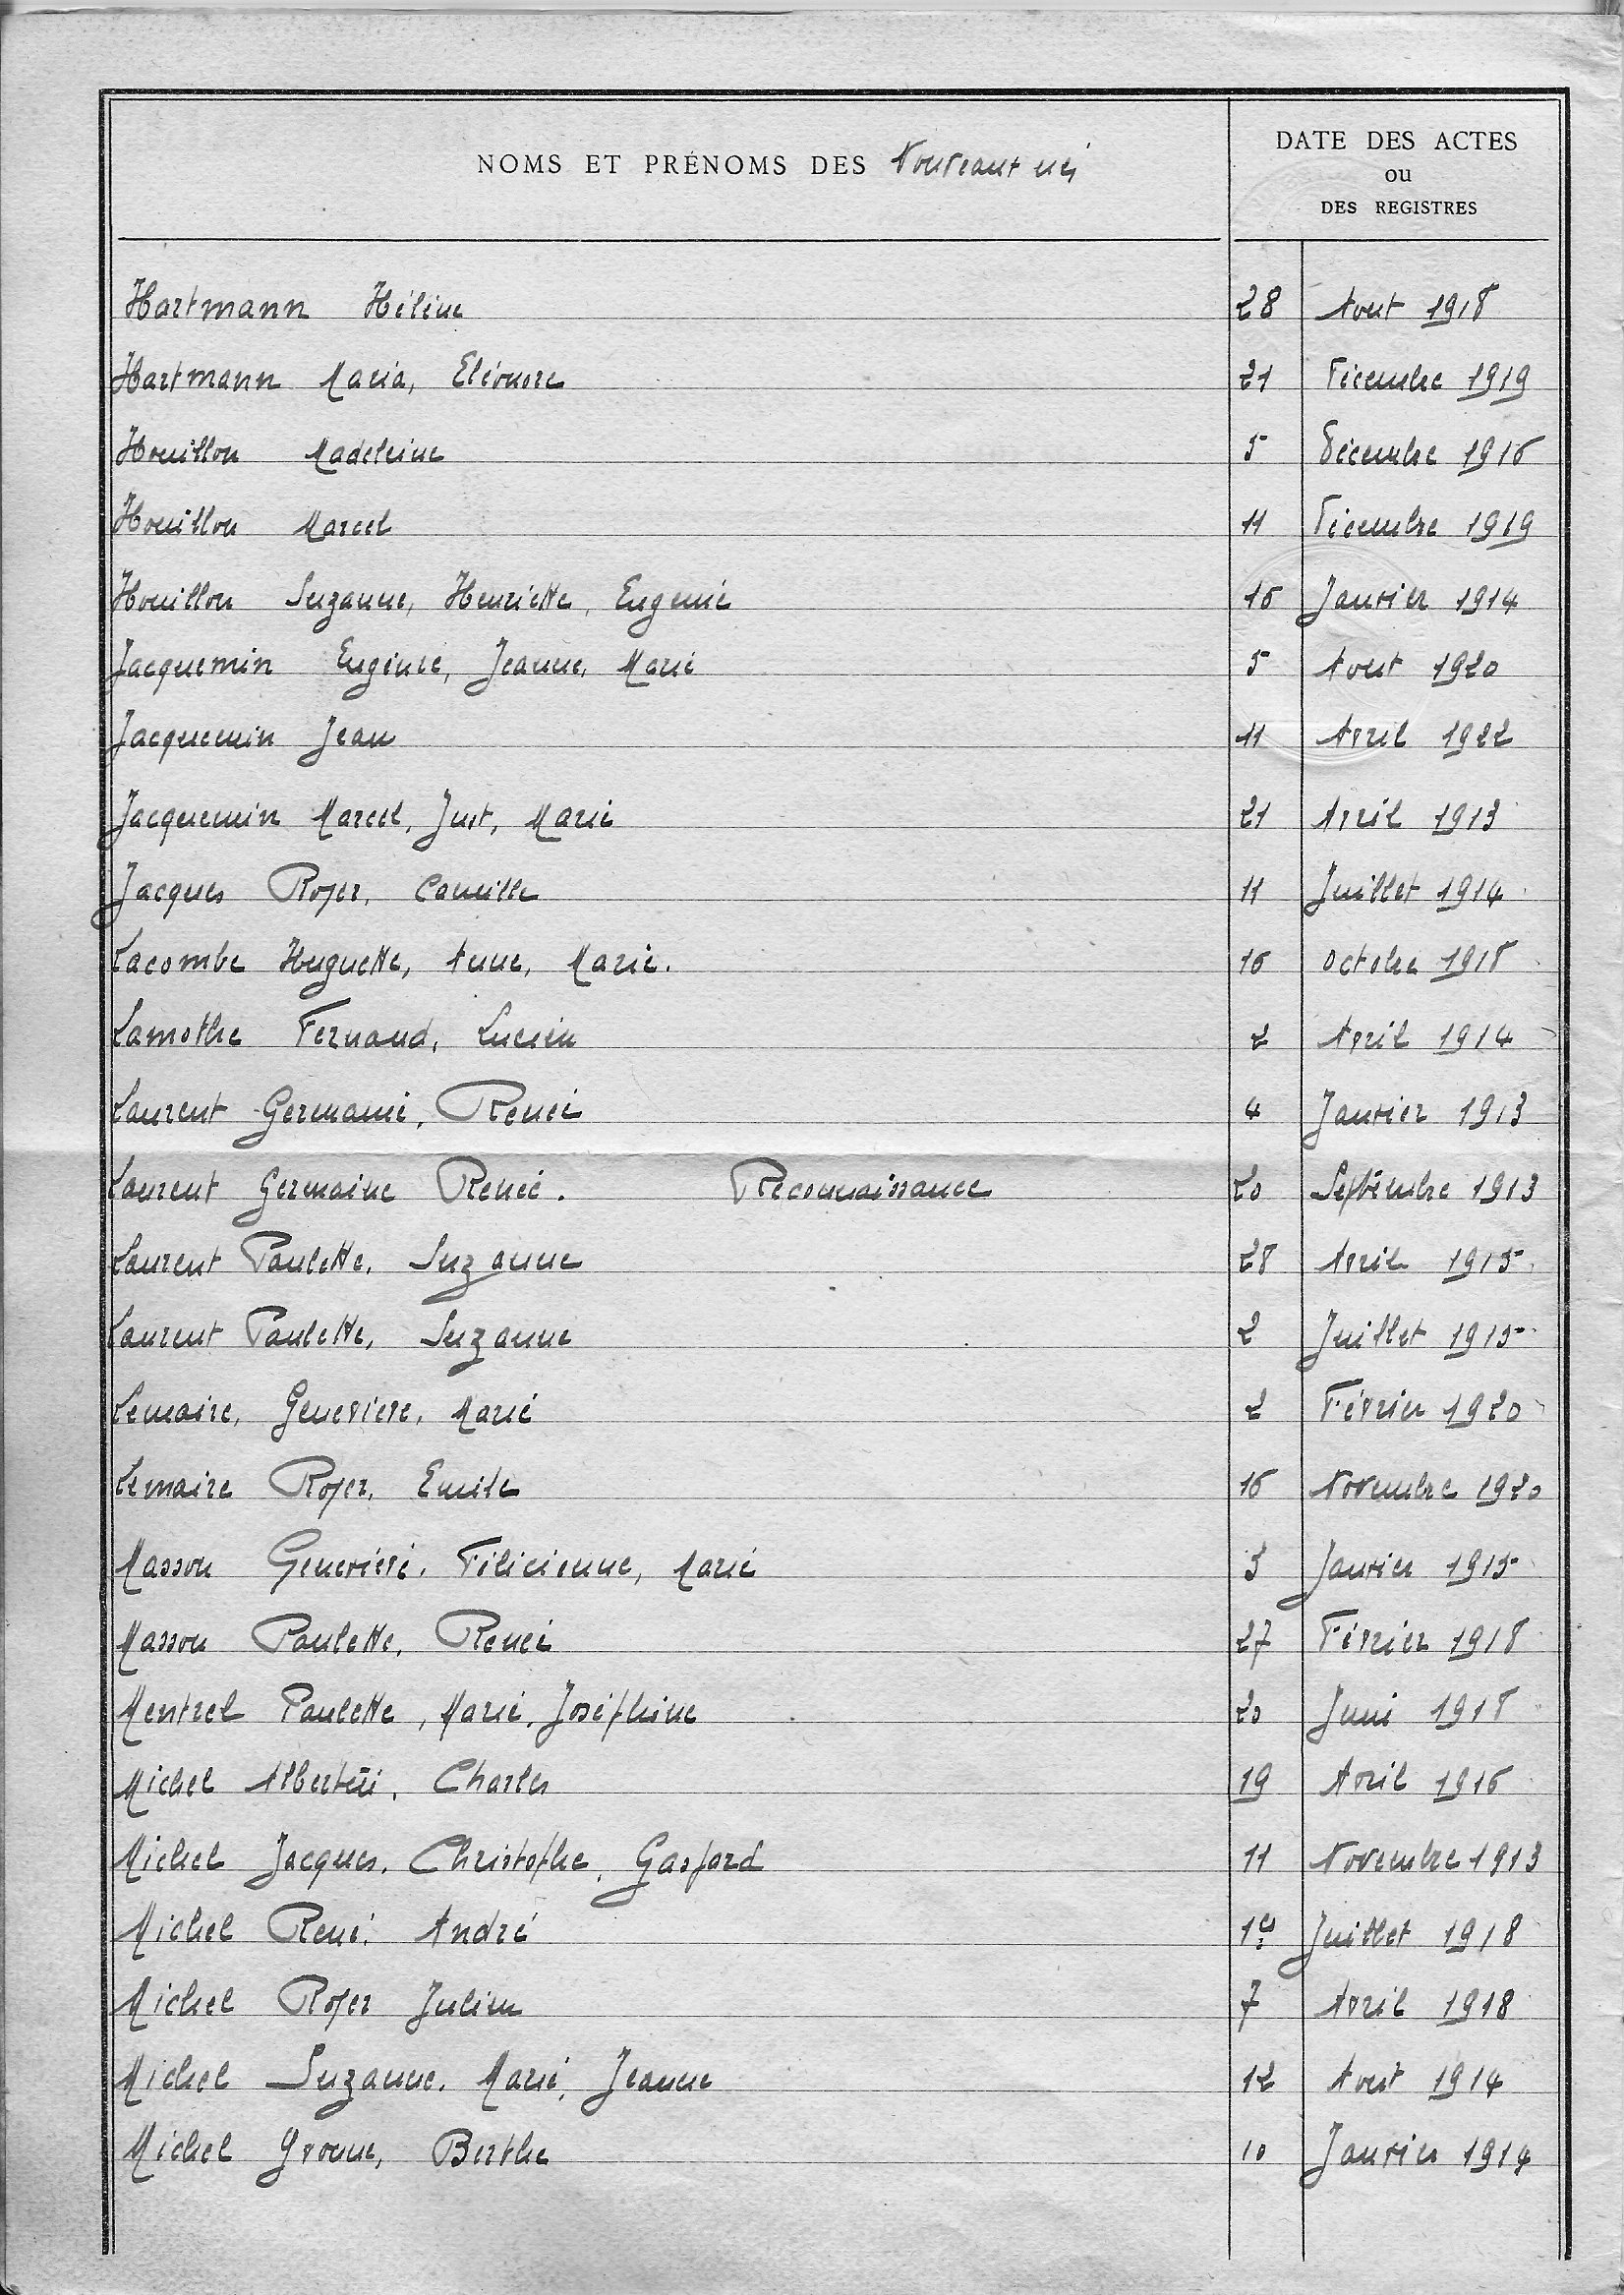 NOMS ET PRÉNOMS DES Nouveaux nés
DATE DES ACTES
ou
DES REGISTRES
Hartmann Hélène 28 Aout 1918
Hartmann Maria, Eléonore 21 Décembre 1919
Houillon Madeleine 5 Décembre 1916
Houillon Marcel 11 Décembre 1919
Houillon Suzanne, Henriette, Eugenie 16 Janvier 1914
Jacquemin Eugénie, Jeanne, Marie 5 Aout 1920
Jacquemin Jean 11 Avril 1922
Jacquemin Marcel, Just, Marie 21 Avril 1913
Jacques Roger, Camille 11 Juillet 1914
Lacombe Huguette, Anne, Marie. 16 Octobre 1918
Lamothe Fernand, Lucien 2 Avril 1914
Laurent Germaine, Renée 4 Janvier 1913
Laurent Germaine Renée. Reconnaissance 20 Septembre 1913
Laurent Paulette, Suzanne 28 Avril 1915
Laurent Paulette, Suzanne 2 Juillet 1915
Lemaire, Geneviève, Marie 2 Février 1920
Lemaire Roger, Emile 16 Novembre 1920
Masson Geneviève, Félicienne, Marie 3 Janvier 1915
Masson Paulette, Renée 27 Février 1918
Mentrel Paulette, Marie, Joséphine 20 Juin 1918
Michel Albert, Charles 19 Avril 1916
Michel Jacques, Christophe, Gaspard 11 Novembre 1913
Michel René, André 1er Juillet 1918
Michel Roger Julien 7 Avril 1918
Michel Suzanne, Marie, Jeanne 12 Aout 1914
Michel Yvonne, Berthe 10 Janvier 1914